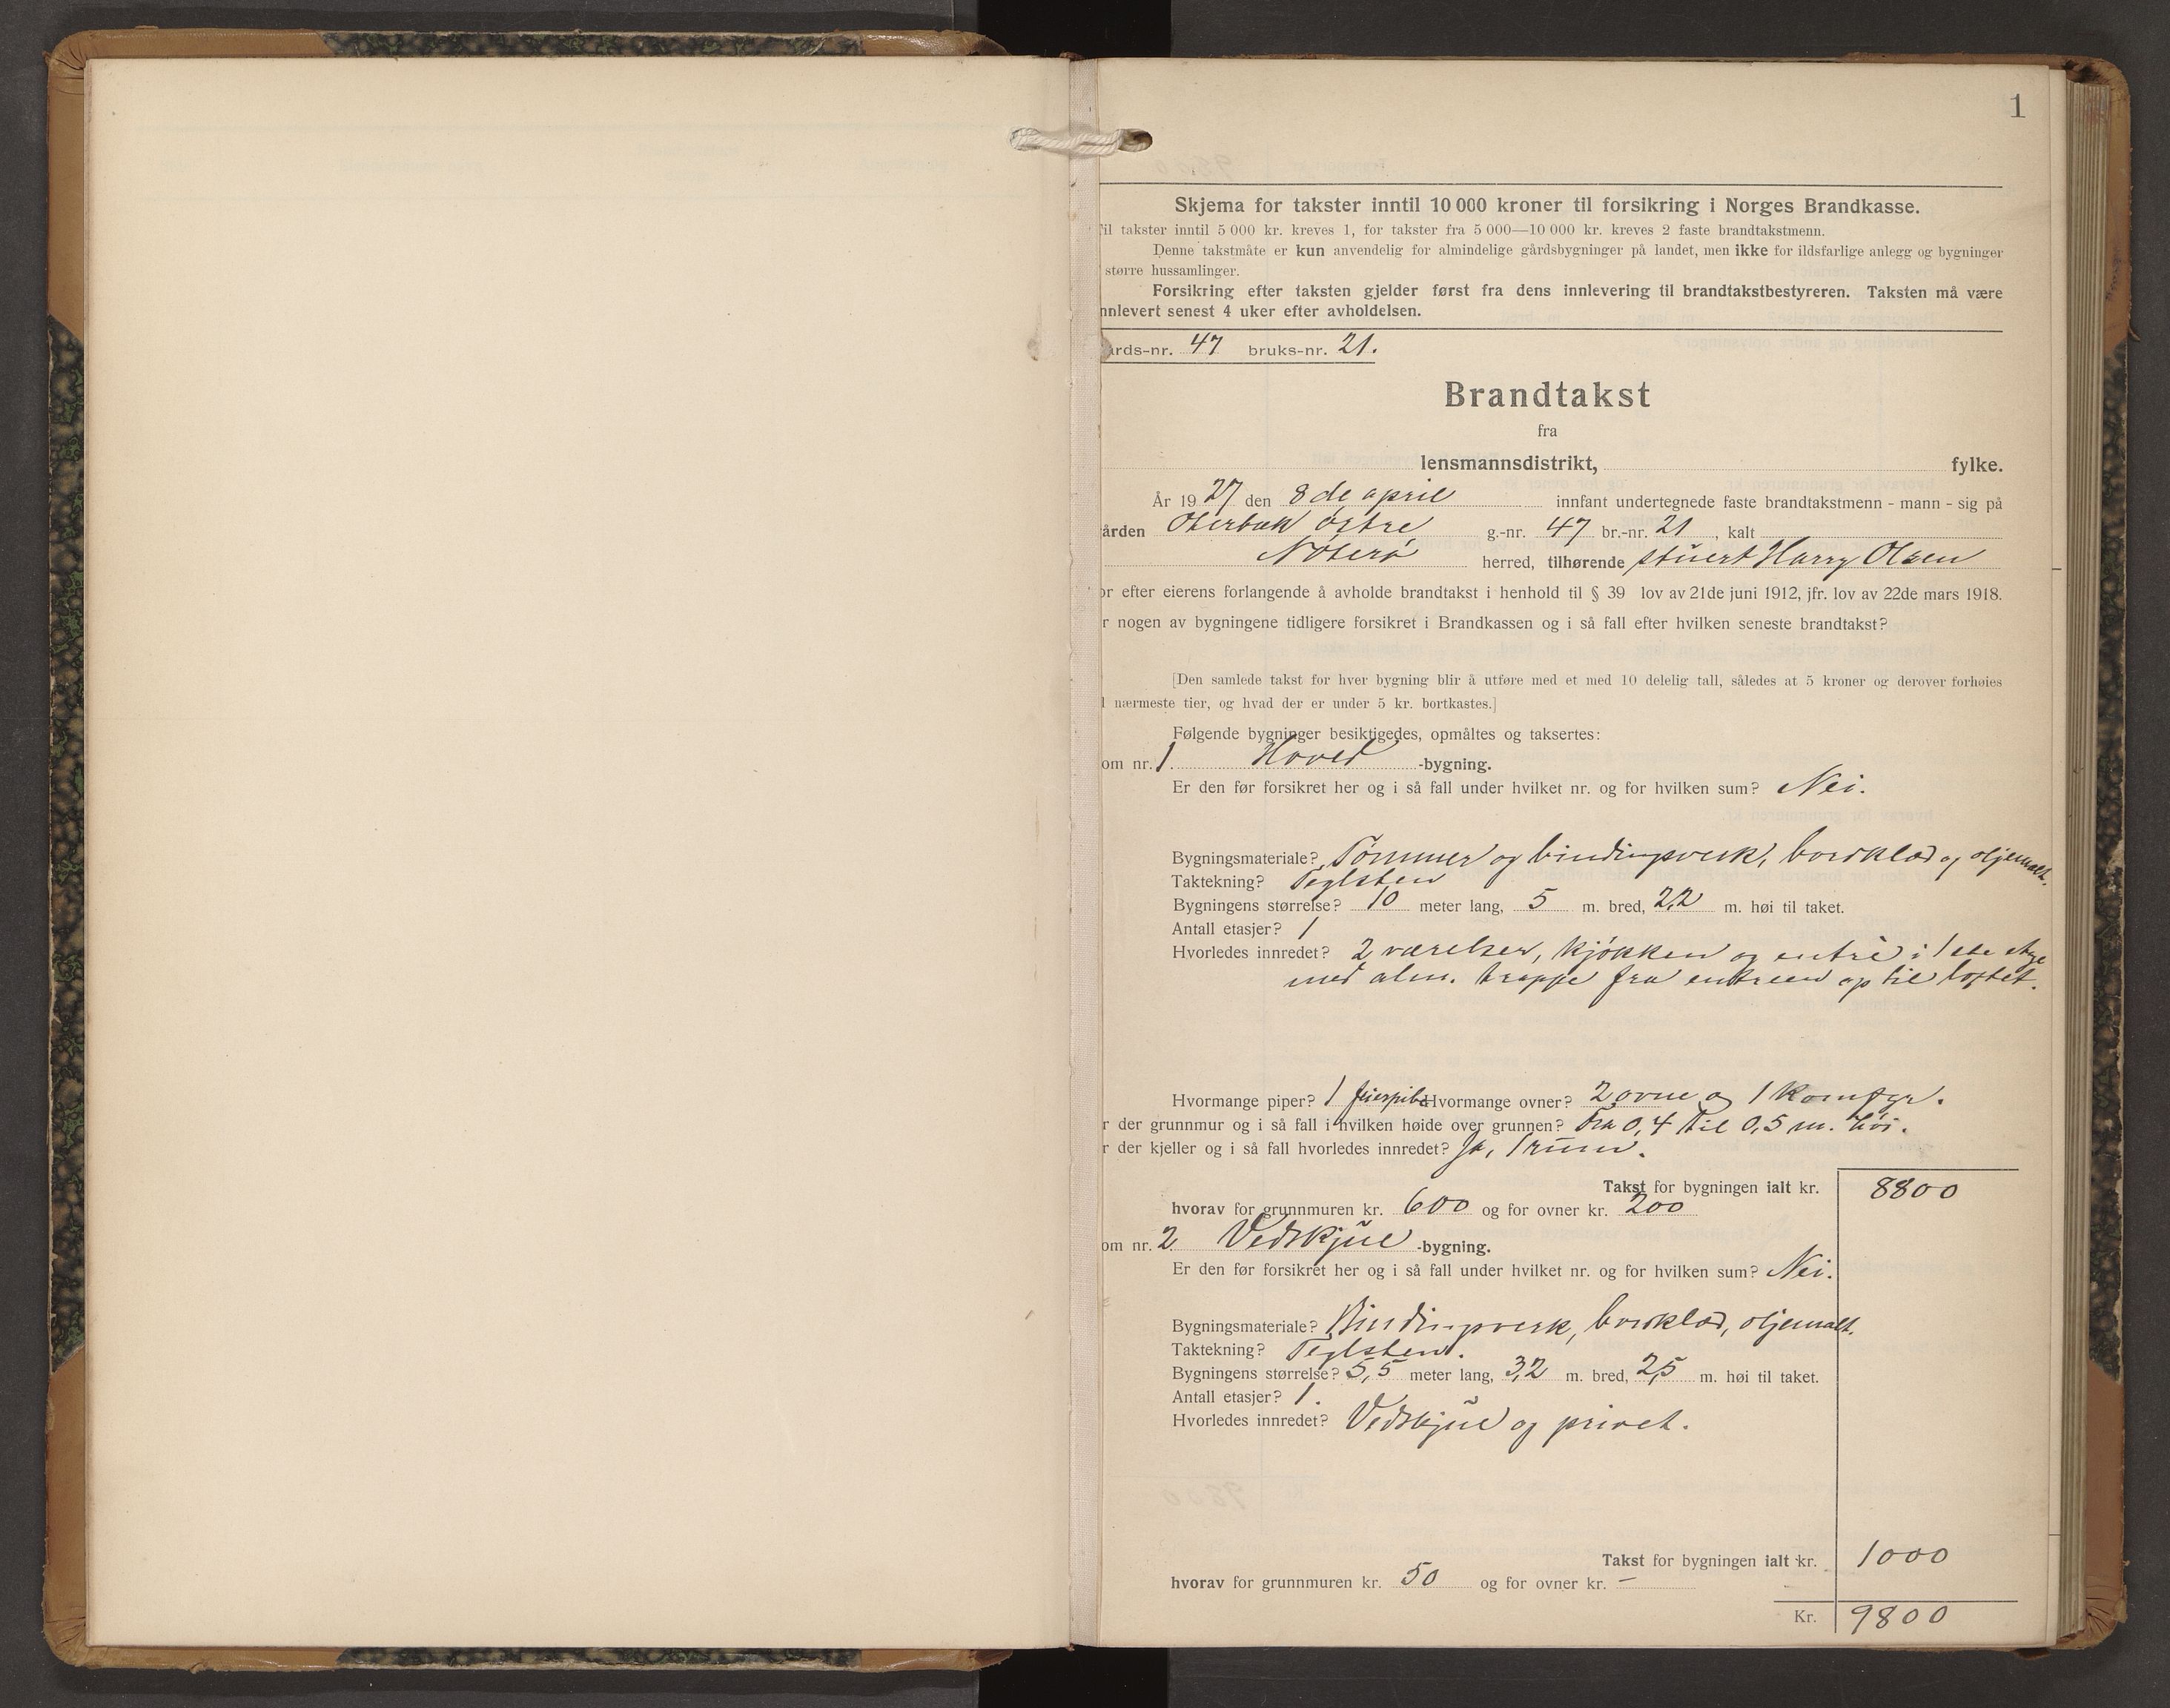 1
Skjema for takster inntil 10 000 kroner til forsikring i Norges Brandkasse.
Til takster inntil 5 000 kr. kreves 1, for takster fra 5 000—10 000 kr. kreves 2 faste brandtakstmenn.
Denne takstmåte er kun anvendelig for almindelige gårdsbygninger på landet, men ikke for ildsfarlige anlegg og bygninger
større hussamlinger.
Forsikring efter taksten gjelder først fra dens innlevering til brandtakstbestyreren. Taksten må være
nnlevert senest 4 uker efter avholdelsen.
ards-nr. 47 bruks-nr. 21.
Brandtakst
fra
lensmannsdistrikt, fylke.
År 1927 den 8de april innfant undertegnede faste brandtakstmenn - mann - sig på
ården Oterbæk østre g.-nr. 47 br.-nr. 21, kalt
Nøterø herred, tilhørende stuert Harry Olsen
or efter eierens forlangende å avholde brandtakst i henhold til § 39 lov av 21de juni 1912, jfr. lov av 22de mars 1918.
r nogen av bygningene tidligere forsikret i Brandkassen og i så fall efter hvilken seneste brandtakst?
[Den samlede takst for hver bygning blir å utføre med et med 10 delelig tall, således at 5 kroner og derover forhøies
l nærmeste tier, og hvad der er under 5 kr. bortkastes.]
Følgende bygninger besiktigedes, opmåltes og taksertes:
om nr. 1. Hoved -bygning.
Er den før forsikret her og i så fall under hvilket nr. og for hvilken sum? Nei.
Bygningsmateriale? Tømmer og bindingsverk, bordklæd og oljemalt.
Taktekning? Teglsten
Bygningens størrelse? 10 meter lang, 5 m. bred, 2,2 m. høi til taket.
Antall etasjer? 1
Hvorledes innredet? 2 værelser, kjøkken og entrè i 1ste etge
med alm. trappe fra entreen op til loftet.
Hvormange piper? 1 feierpibe Hvormange ovner? 2 ovne og 1 komfyr.
r der grunnmur og i så fall i hvilken høide over grunnen? Fra 0,4 til 0,5 m. høi.
r der kjeller og i så fall hvorledes innredet? Ja, 1 rum.
Takst for bygningen ialt kr. 8800
hvorav for grunnmuren kr. 600 og for ovner kr. 200
om nr. 2 Vedskjul -bygning.
Er den før forsikret her og i så fall under hvilket nr. og for hvilken sum? Nei.
Bygningsmateriale? Bindingsverk, bordklæd, oljemalt.
Taktekning? Teglsten.
Bygningens størrelse? 5,5 meter lang, 3,2 m. bred, 2,5 m. høi til taket.
Antall etasjer? 1.
Hvorledes innredet? Vedskjul og privet.
Takst for bygningen ialt kr. 1000
hvorav for grunnmuren kr. 50 og for ovner kr. –
Kr. 9800